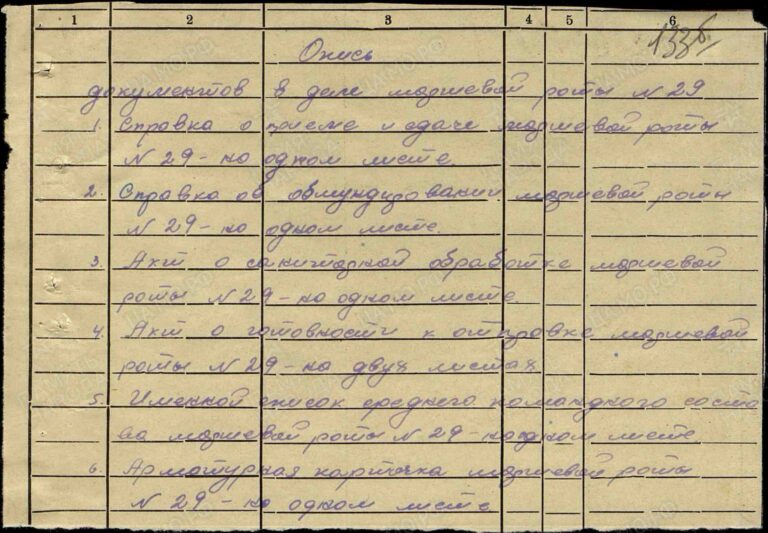 1 2 3 4 5 6
133б
Опись
документов в деле маршевой роты N 29
1. Справка о приеме и сдаче маршевой роты
N 29 - на одном листе.
2. Справка об обмундировании маршевой роты
N 29 - на одном листе.
3. Акт о санитарной обработке маршевой
роты N 29 - на одном листе.
4. Акт о готовности к отправке маршевой
роты N 29 - на двух листах
5. Именной список среднего командного соста
ва маршевой роты N 29 - на одном листе
6. Арматурная карточка маршевой роты
N 29 - на одном листе